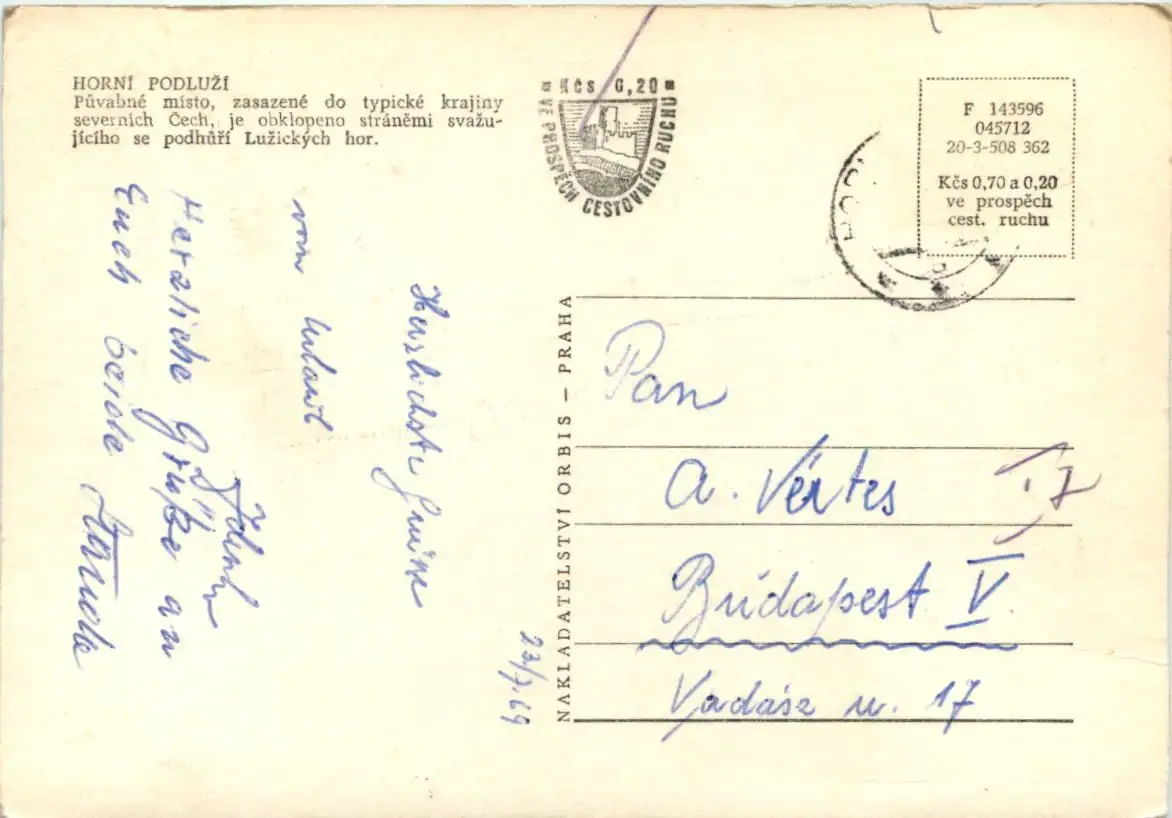 HORNÍ PODLUŽÍ
Půvabné místo, zasazené do typické krajiny
severních Čech, je obklopeno stráněmi svažu-
jícího se podhůří Lužických hor.
Kčs 0,20
VE PROSPĚCH CESTOVNÍHO RUCHU
F 143596
045712
20-3-508 362
Kčs 0,70 a 0,20
ve prospěch
cest. ruchu
NAKLADATELSTVÍ ORBIS – PRAHA
23/7.69
Herzlichste Grüsse
vom Urlaub
Herzliche Grüße an
Euch beide
Pan
A. Vértes
Budapest V.
Vadász u. 17